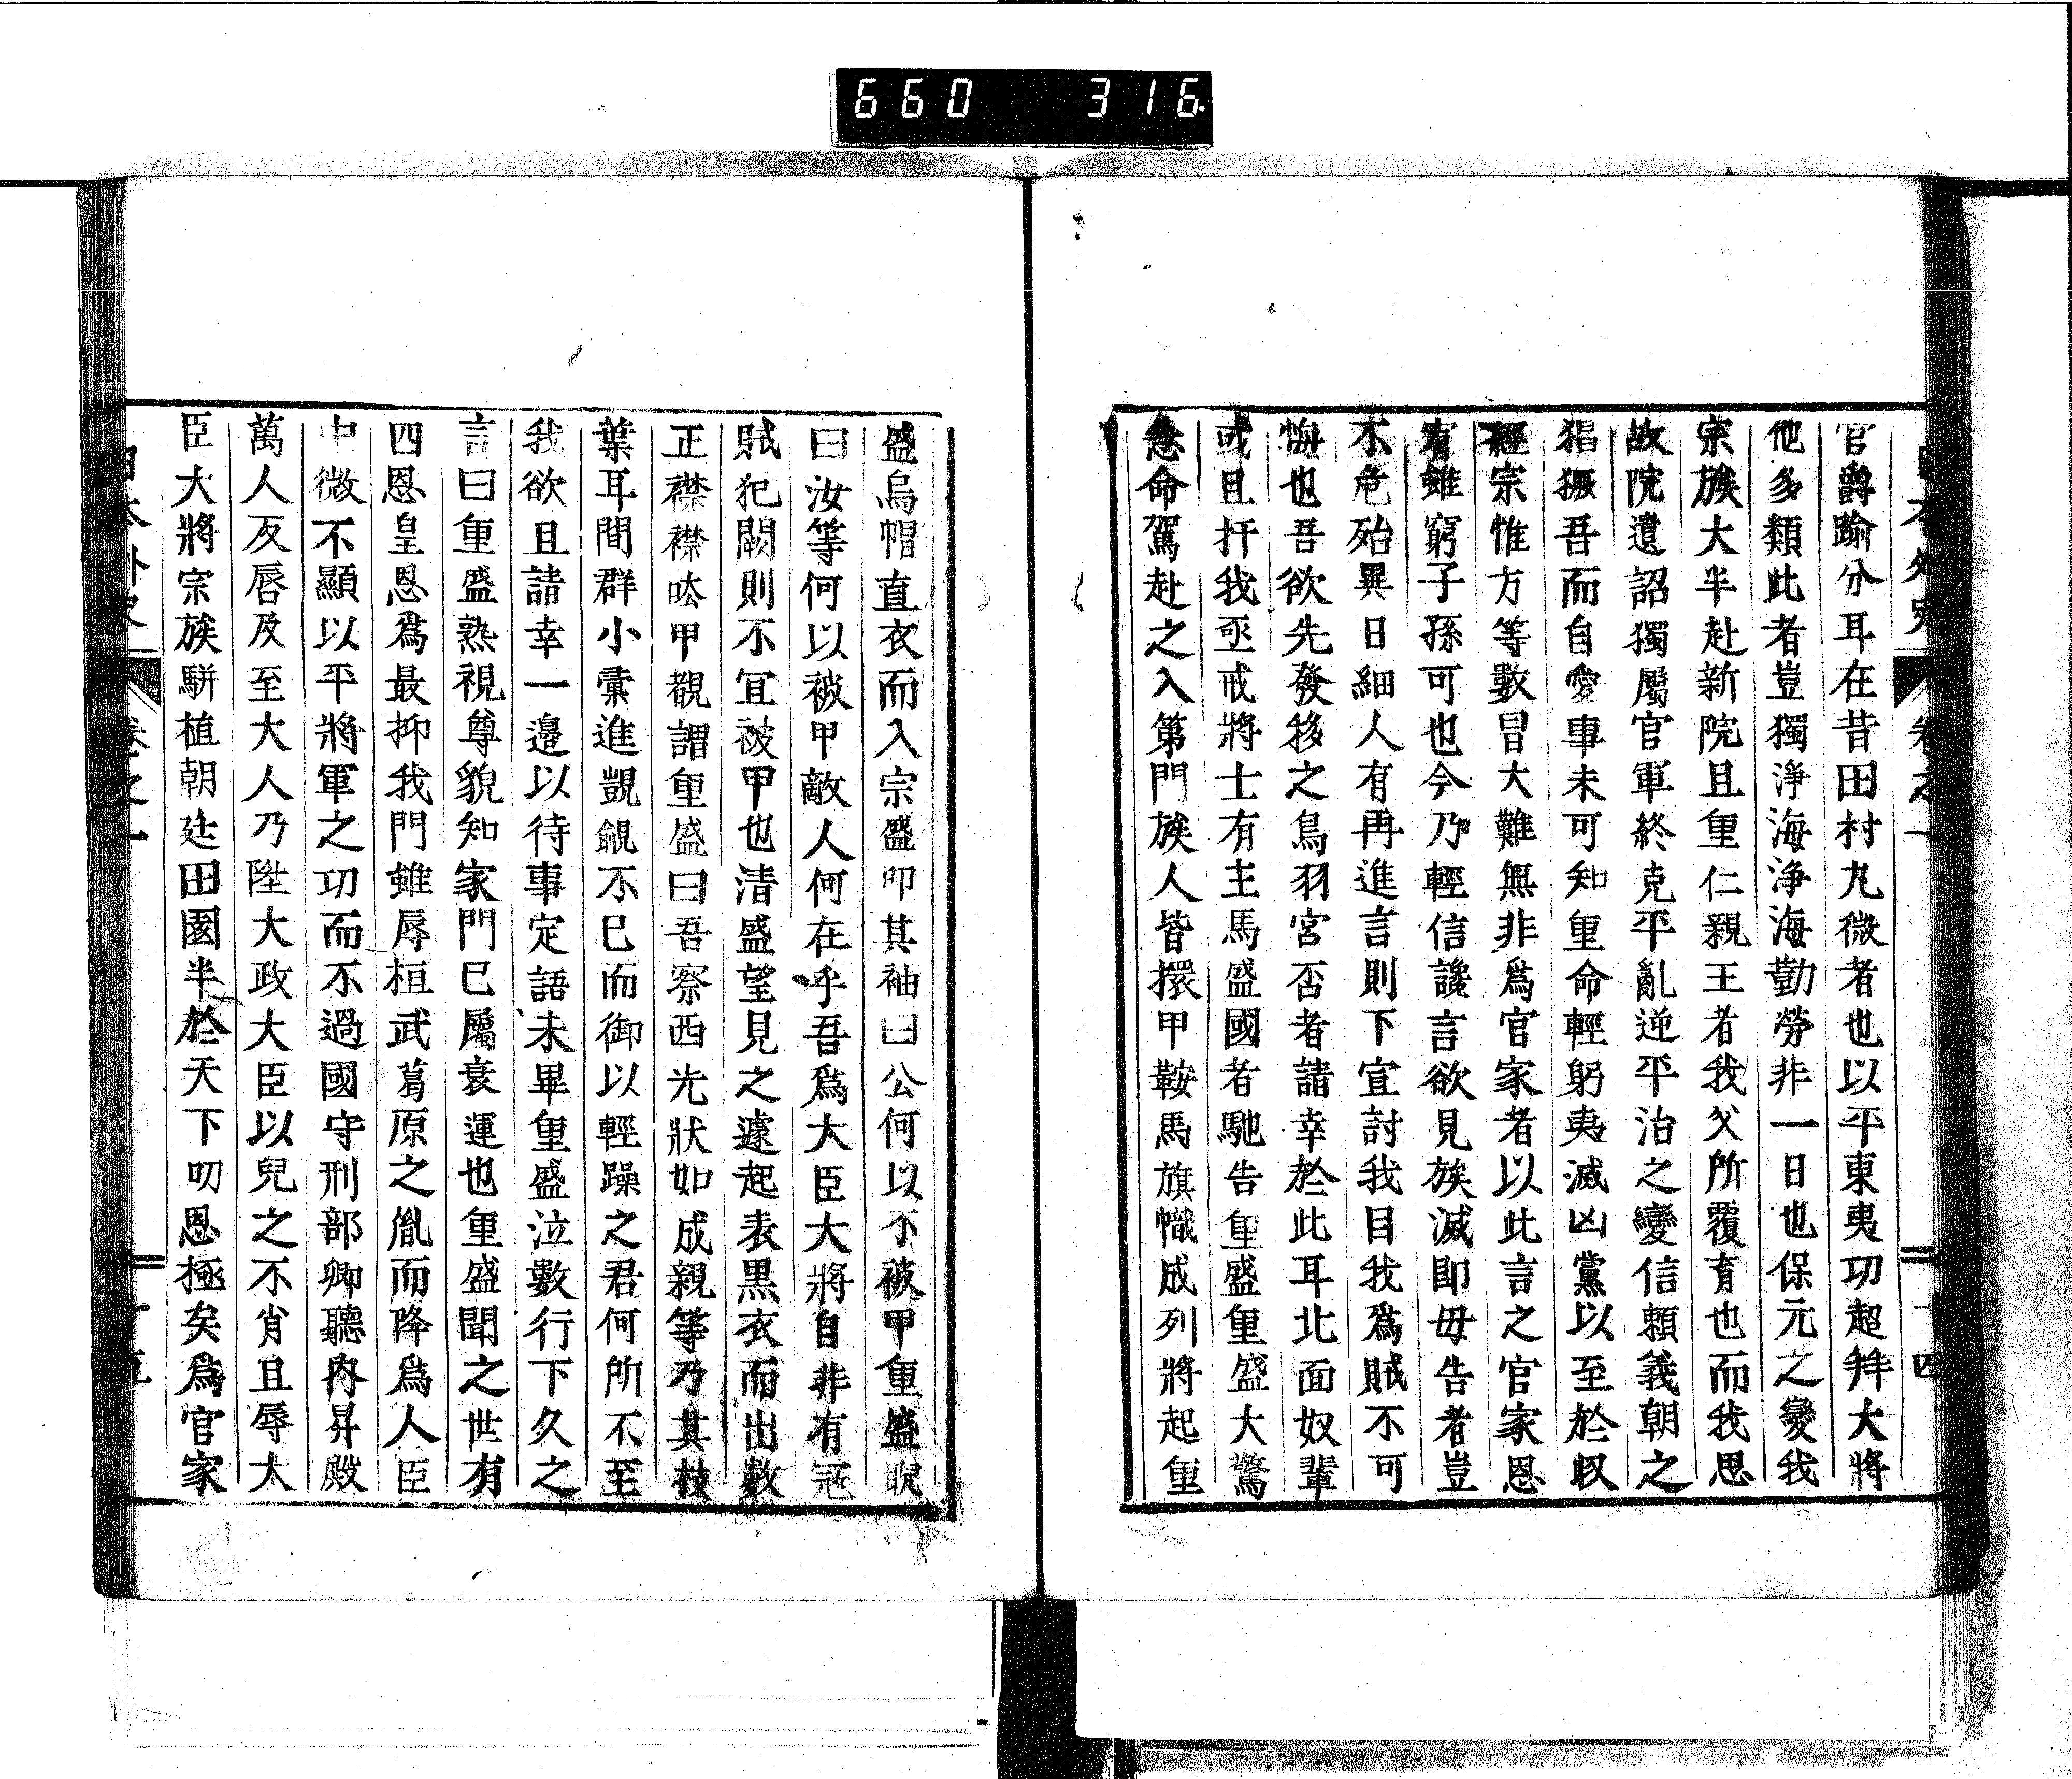 660 316
官爵踰分耳在昔田村丸微者也以平東夷功超拜大將
他多類此者豈獨淨海淨海勤勞非一日也保元之變我
宗族大半赴新院且重仁親王者我父所覆育也而我思
故院遺詔獨屬官軍終克平亂逆平治之變信賴義朝之
猖獗吾而自愛事未可知重命輕躬夷滅凶黨以至於収
經宗惟方等數冒大難無非爲官家者以此言之官家恩
宥雖窮子孫可也今乃輕信讒言欲見族滅即毋告者豈
不危殆異日細人有再進言則下宜討我目我爲賊不可
悔也吾欲先發移之鳥羽宮否者請幸於此耳北面奴輩
或且扞我亟戒將士有主馬盛國者馳告重盛重盛大驚
急命駕赴之入第門族人皆擐甲鞍馬旗幟成列將起重
盛烏帽直衣而入宗盛叩其袖曰公何以不被甲重盛睨
曰汝等何以被甲敵人何在乎吾爲大臣大將自非有冦
賊犯闕則不宜被甲也清盛望見之遽起表黒衣而出數
正襟襟呿甲覩謂重盛曰吾察西光狀如成親等乃其枝
葉耳間群小彙進覬覦不已而御以輕躁之君何所不至
我欲且請幸一邊以待事定語未畢重盛泣數行下久之
言曰重盛熟視尊貌知家門已屬衰運也重盛聞之世有
四恩皇恩爲最抑我門雖辱桓武葛原之胤而降爲人臣
中微不顯以平將軍之功而不過國守刑部卿聽內昇殿
萬人反唇及至大人乃陞大政大臣以兒之不肖且辱大
臣大將宗族駢植朝廷田園半於天下叨恩極矣爲官家